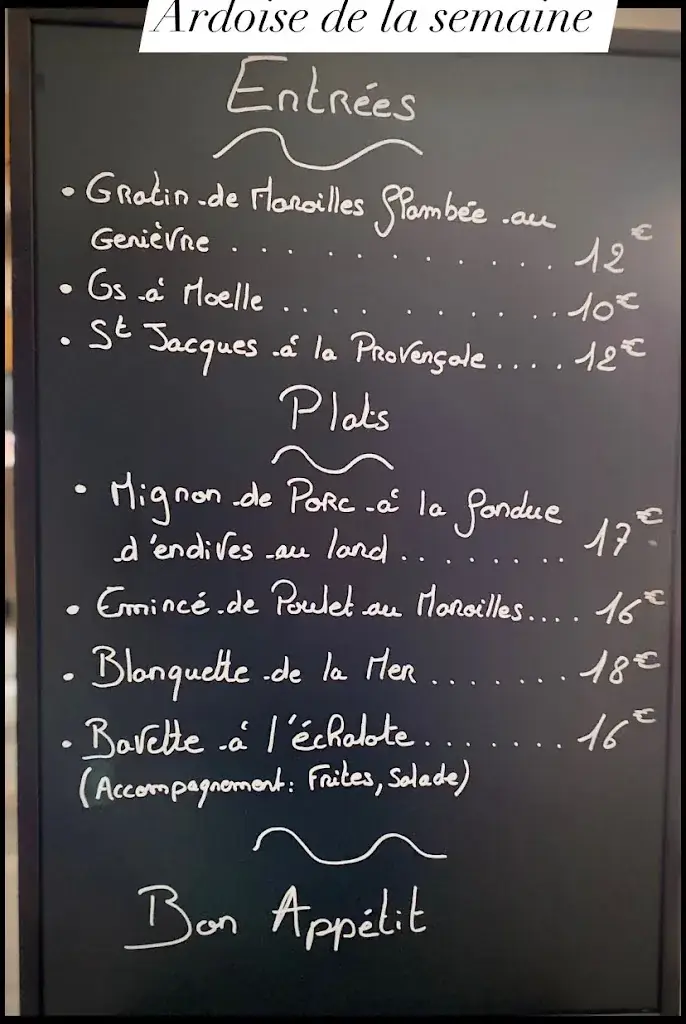 Ardoise de la semaine
Entrées
• Gratin de Maroilles flambée au
Genièvre . . . . . . . . . . . . 12€
• Os à Moelle . . . . . . . . . . 10€
• St Jacques à la Provençale.... 12€
Plats
• Mignon de Porc à la fondue
d'endives au lard . . . . . . . . 17€
• Emincé de Poulet au Maroilles.... 16€
• Blanquette de la Mer ....... 18€
• Bavette à l'échalote........ 16€
(Accompagnement: Frites, Salade)
Bon Appétit